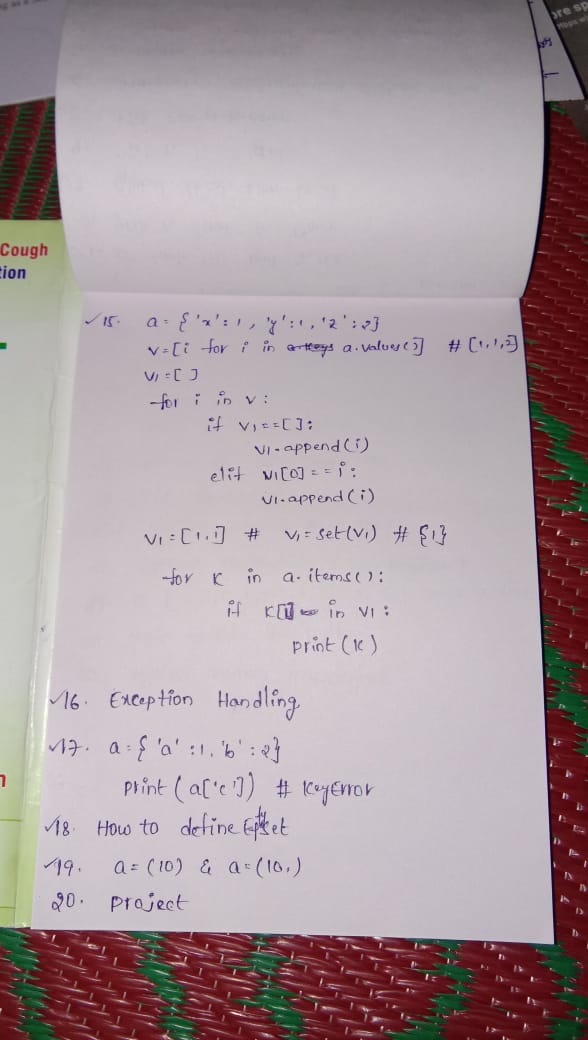 Cough
tion
15. a = {'x':1, 'y':1, 'z':2}
v=[i for i in a.values()] # [1,1,2]
v1=[]
for i in v:
if v1==[]:
v1.append(i)
elif v1[0]==i:
v1.append(i)
v1=[1,1] # v1=set(v1) # {1}
for k in a.items():
if k[1] in v1:
print(k)
16. Exception Handling
17. a={'a':1,'b':2}
print(a['c']) # KeyError
18. How to define Empty set
19. a=(10) & a=(10,)
20. project